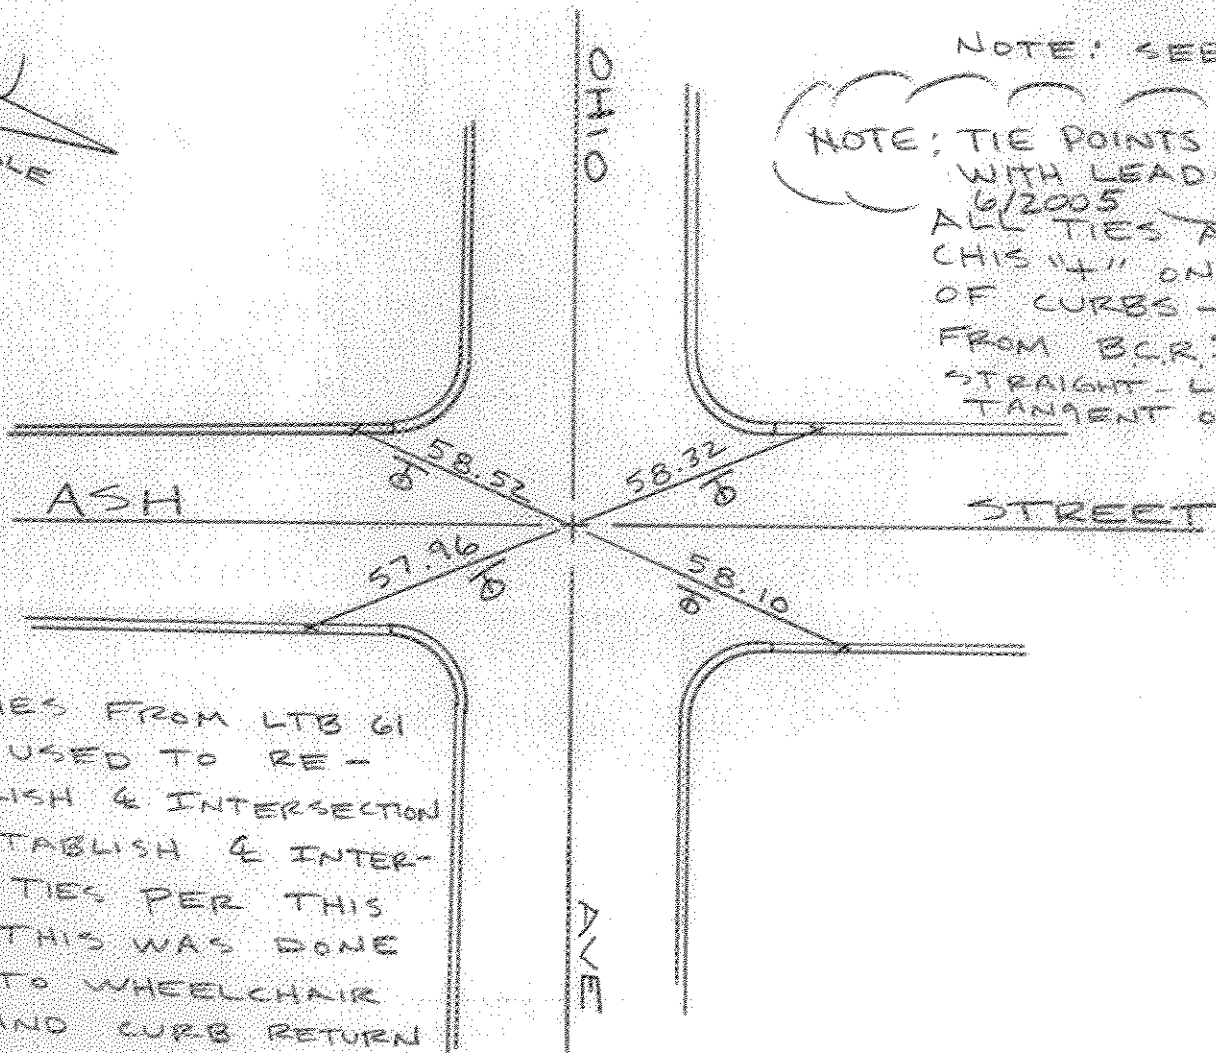 NOTE: SEE
NOTE: TIE POINTS
WITH LEAD
6/2005
ALL TIES A
CHIS "+" ON
OF CURBS -
FROM B.C.R.
STRAIGHT - L
TANGENT O
OHIO
58.52
58.32
ASH
STREET
57.96
58.10
IES FROM LTB 61
USED TO RE -
LISH & INTERSECTION
TABLISH ℄ INTER-
TIES PER THIS
THIS WAS DONE
TO WHEELCHAIR
AND CURB RETURN
AVE